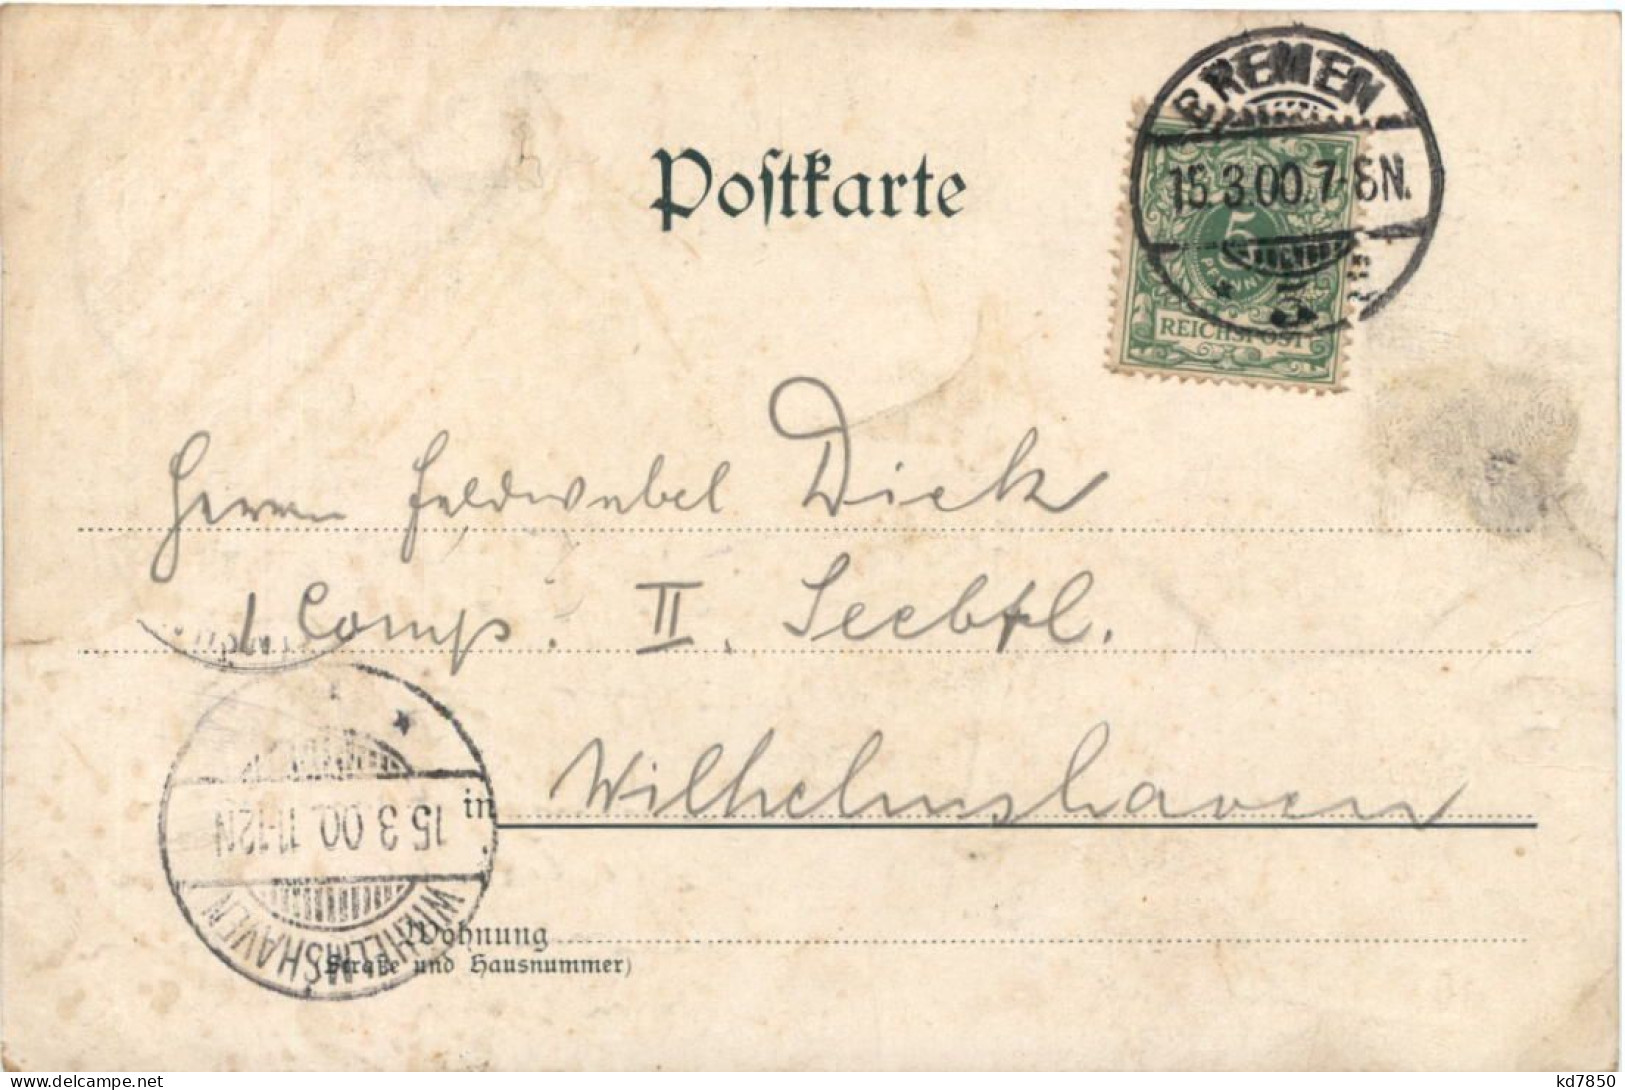 Postkarte
BREMEN
15.3.00.7-8N.
* 5 *
5
PFENNIG
REICHSPOST
Herrn Feldwebel Dieck
1 Comp. II. Seebtl.
in Wilhelmshaven
15.3.00.11-12N
WILHELMSHAVEN
* *
Wohnung
(Straße und Hausnummer)
www.delcampe.net
kd7850